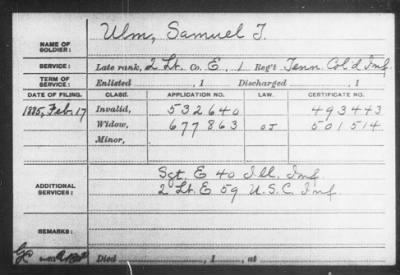 Ulm, Samuel T.
NAME OF SOLDIER:
SERVICE: Late rank, 2 Lt. Co. E, 1 Reg't Tenn Col'd Inf
TERM OF SERVICE: Enlisted , 1 Discharged , 1
DATE OF FILING. CLASS. APPLICATION NO. LAW. CERTIFICATE NO.
1885, Feb. 17 Invalid, 532640 493443
Widow, 677863 OJ 501514
Minor,
ADDITIONAL SERVICES:
Sgt. E 40 Ill. Inf.
2 Lt. E 59 U.S.C. Inf.
REMARKS:
Died , 1 , at